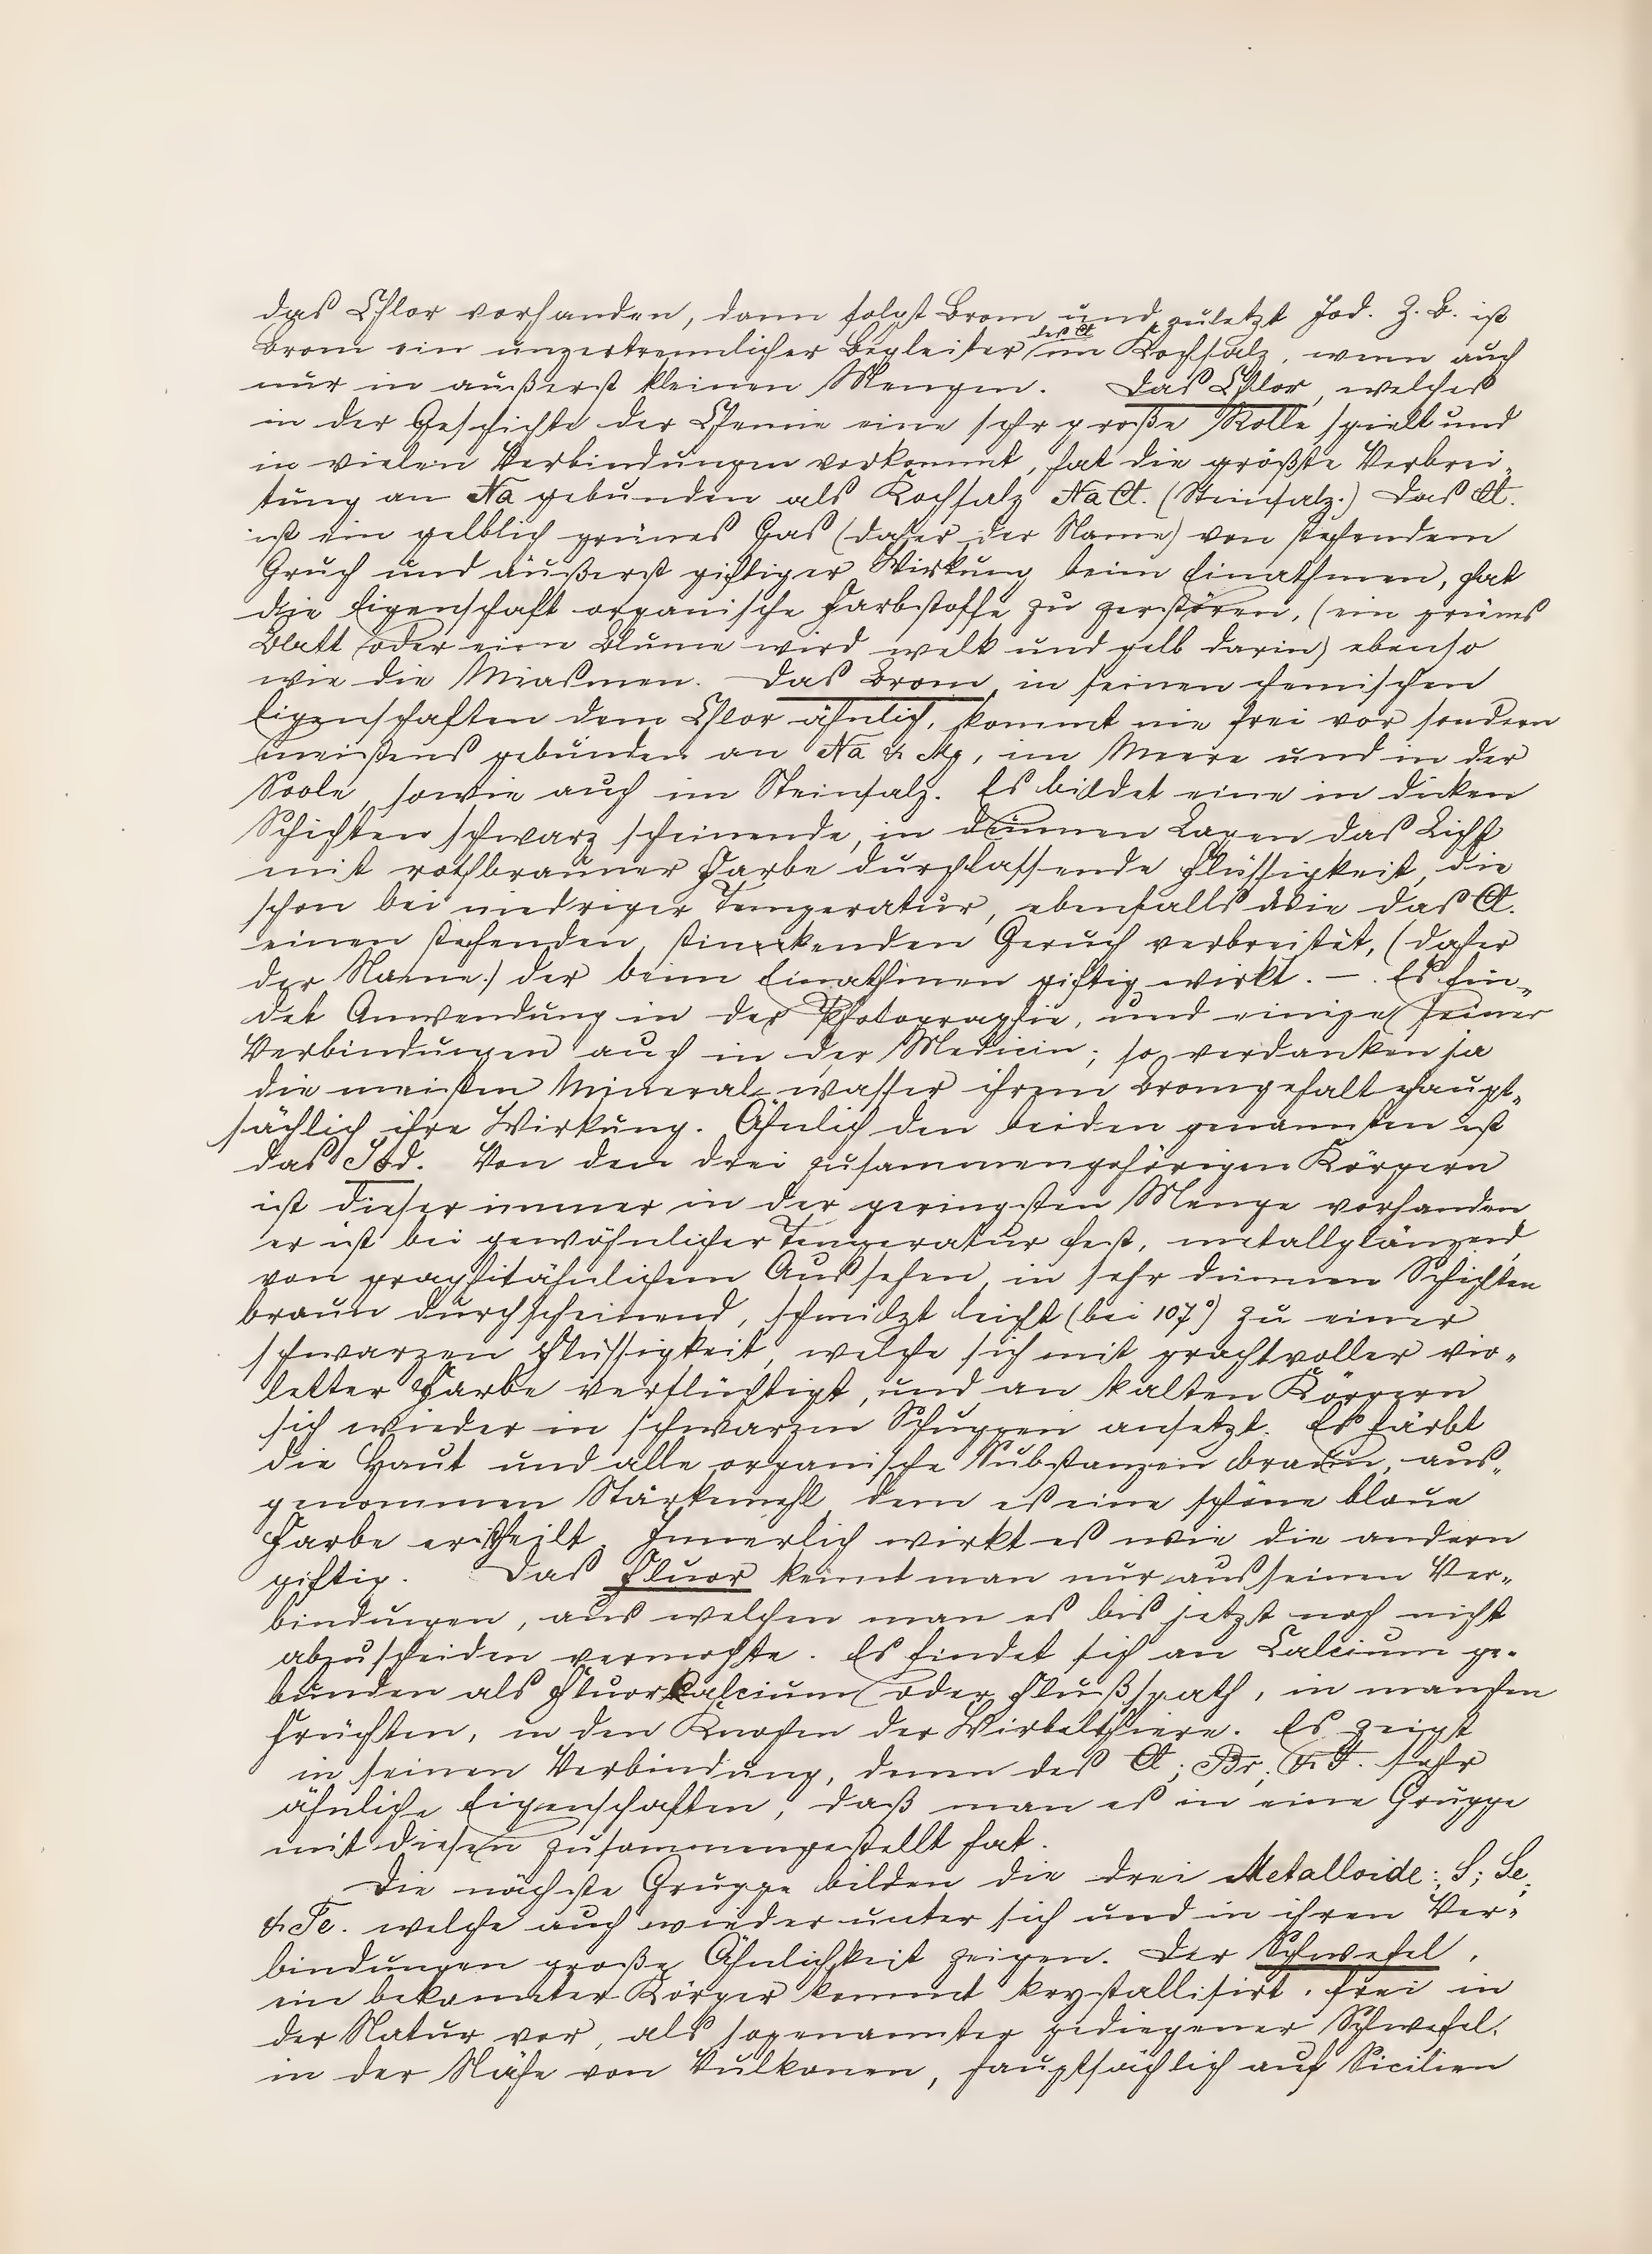 das Chlor vorhanden, dann folgt Brom und zuletzt Jod. Z. B. ist
Brom ein unzertrennlicher Begleiter des Cl im Kochsalz, wenn auch
nur in äußerst kleinen Mengen. Das Chlor, welches
in der Geschichte der Chemie eine sehr große Rolle spielt und
in vielen Verbindungen vorkommt, hat die größte Verbrei-
tung an Na gebunden als Kochsalz NaCl. (Steinsalz.) Das Cl.
ist ein gelblich grünes Gas (daher der Name) von stechendem
Gruch und äußerst giftiger Wirkung beim Einathmen, hat
die Eigenschaft organische Farbstoffe zu zerstören, (ein grünes
Blatt oder eine Blume wird welk und gelb darin) ebenso
wie die Miasmen. Das Brom, in seinen chemischen
Eigenschaften dem Chlor ähnlich, kommt nie frei vor sondern
meistens gebunden an Na & Mg, im Meere und in der
Soole, sowie auch im Steinsalz. Es bildet eine in dicken
Schichten schwarz scheinende, in dünnen Lagen das Licht
mit rothbrauner Farbe durchlassende Flüssigkeit, die
schon bei niedriger Temperatur, ebenfalls wie das Cl.
einen stechenden, stinkenden Geruch verbreitet, (daher
der Name.) der beim Einathmen giftig wirkt. — . Es fin-
det Anwendung in der Photographie, und einige seiner
Verbindungen auch in der Medicin; so verdanken ja
die meisten Mineral-wasser ihrem Bromgehalt haupt-
sächlich ihre Wirkung. Ähnlich den beiden genannten ist
das Jod. Von den drei zusammengehörigen Körpern
ist dieser immer in der geringsten Menge vorhanden
er ist bei gewöhnlicher Temperatur fest, metallglänzend,
von graphitähnlichem Aussehen, in sehr dünnen Schichten
braun durchscheinend, schmilzt leicht (bei 107°) zu einer
schwarzen Flüssigkeit, welche sich mit prachtvoller vio-
letter Farbe verflüchtigt, und an kalten Körpern
sich wieder in schwarzen Schuppen ansetzt. Es färbt
die Haut und alle organische Substanzen braun, aus-
genommen Stärkemehl, dem es eine schöne blaue
Farbe ertheilt. Innerlich wirkt es wie die andern
giftig. Das Fluor kennt man nur aus seinen Ver-
bindungen, aus welchen man es bis jetzt noch nicht
abzuscheiden vermochte. Es findet sich an Calcium ge-
bunden als Fluorkalcium oder Flußspath, in manchen
Früchten, in den Knochen der Wirbelthiere. Es zeigt
in seinen Verbindung, denen des Cl; Br; & J. sehr
ähnliche Eigenschaften, daß man es in eine Gruppe
mit diesen zusammengestellt hat.
Die nächste Gruppe bilden die drei Metalloide: S; Se;
& Te. welche auch wieder unter sich und in ihren Ver-
bindungen große Ähnlichkeit zeigen. Der Schwefel,
ein bekannter Körper kommt krystallisirt, frei in
der Natur vor, als sogenannter gediegener Schwefel.
in der Nähe von Vulkanen, hauptsächlich auf Sicilien